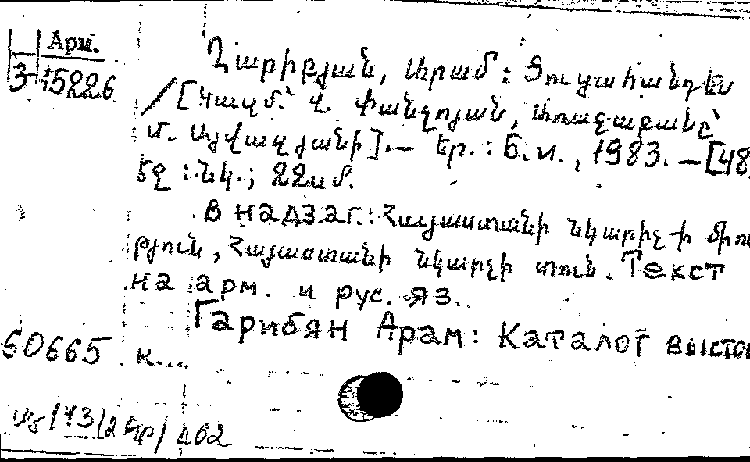 Арм.
3-15226
Ղարիբյան, Արամ: Ցուցահանդես
/[Կազմ.՝ Վ. Փանզոյան, առաջաբանը՝
Մ. Այվազյանի].— Եր.: Б.и., 1983.—[48]
էջ : նկ.; 22սմ.
В надзаг.: Հայաստանի նկարիչ-ի միու
թյուն, Հայաստանի նկարչի տուն. Текст
на арм. и рус. яз.
Гарибян Арам: Каталог выстав
60665 к...